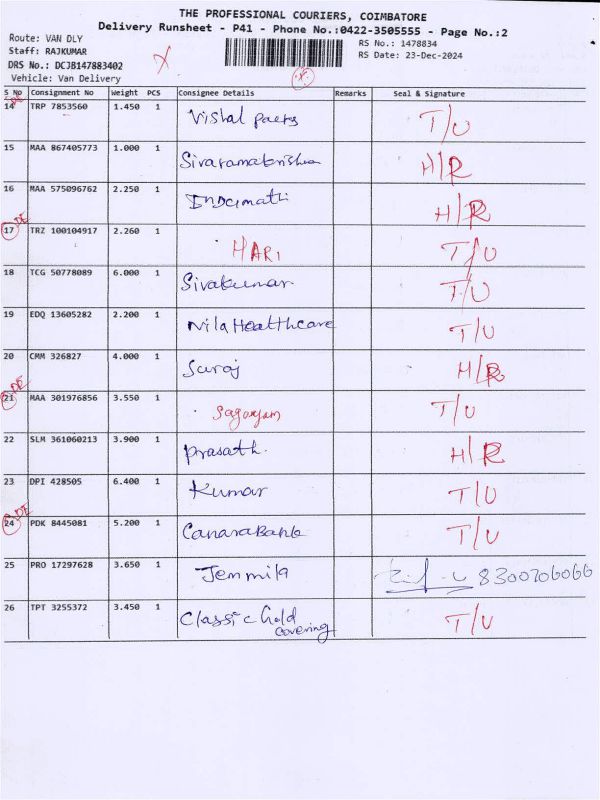 THE PROFESSIONAL COURIERS, COIMBATORE
Delivery Runsheet - P41 - Phone No.:0422-3505555 - Page No.:2
Route: VAN DLY
Staff: RAJKUMAR
DRS No.: DCJB147883402
Vehicle: Van Delivery
RS No.: 1478834
RS Date: 23-Dec-2024
S No Consignment No Weight PCS Consignee Details Remarks Seal & Signature
DE
14 TRP 7853560 1.450 1 Vishal Paers T/U
15 MAA 867405773 1.000 1 Sivaramakrishna H/R
16 MAA 575096762 2.250 1 Indumathi H/R
DE
17 TRZ 100104917 2.260 1 HARI T/U
18 TCG 50778089 6.000 1 Sivakumar T/U
19 EDQ 13605282 2.200 1 Nila Healthcare T/U
20 CMM 326827 4.000 1 Suraj H/R
DE
21 MAA 301976856 3.550 1 Sagayam T/U
22 SLM 361060213 3.900 1 Prasath. H/R
23 DPI 428505 6.400 1 Kumar T/U
DE
24 PDK 8445081 5.200 1 Canara Bank T/U
25 PRO 17297628 3.650 1 Jemmila 8300706066
26 TPT 3255372 3.450 1 Classic Gold T/U
covering